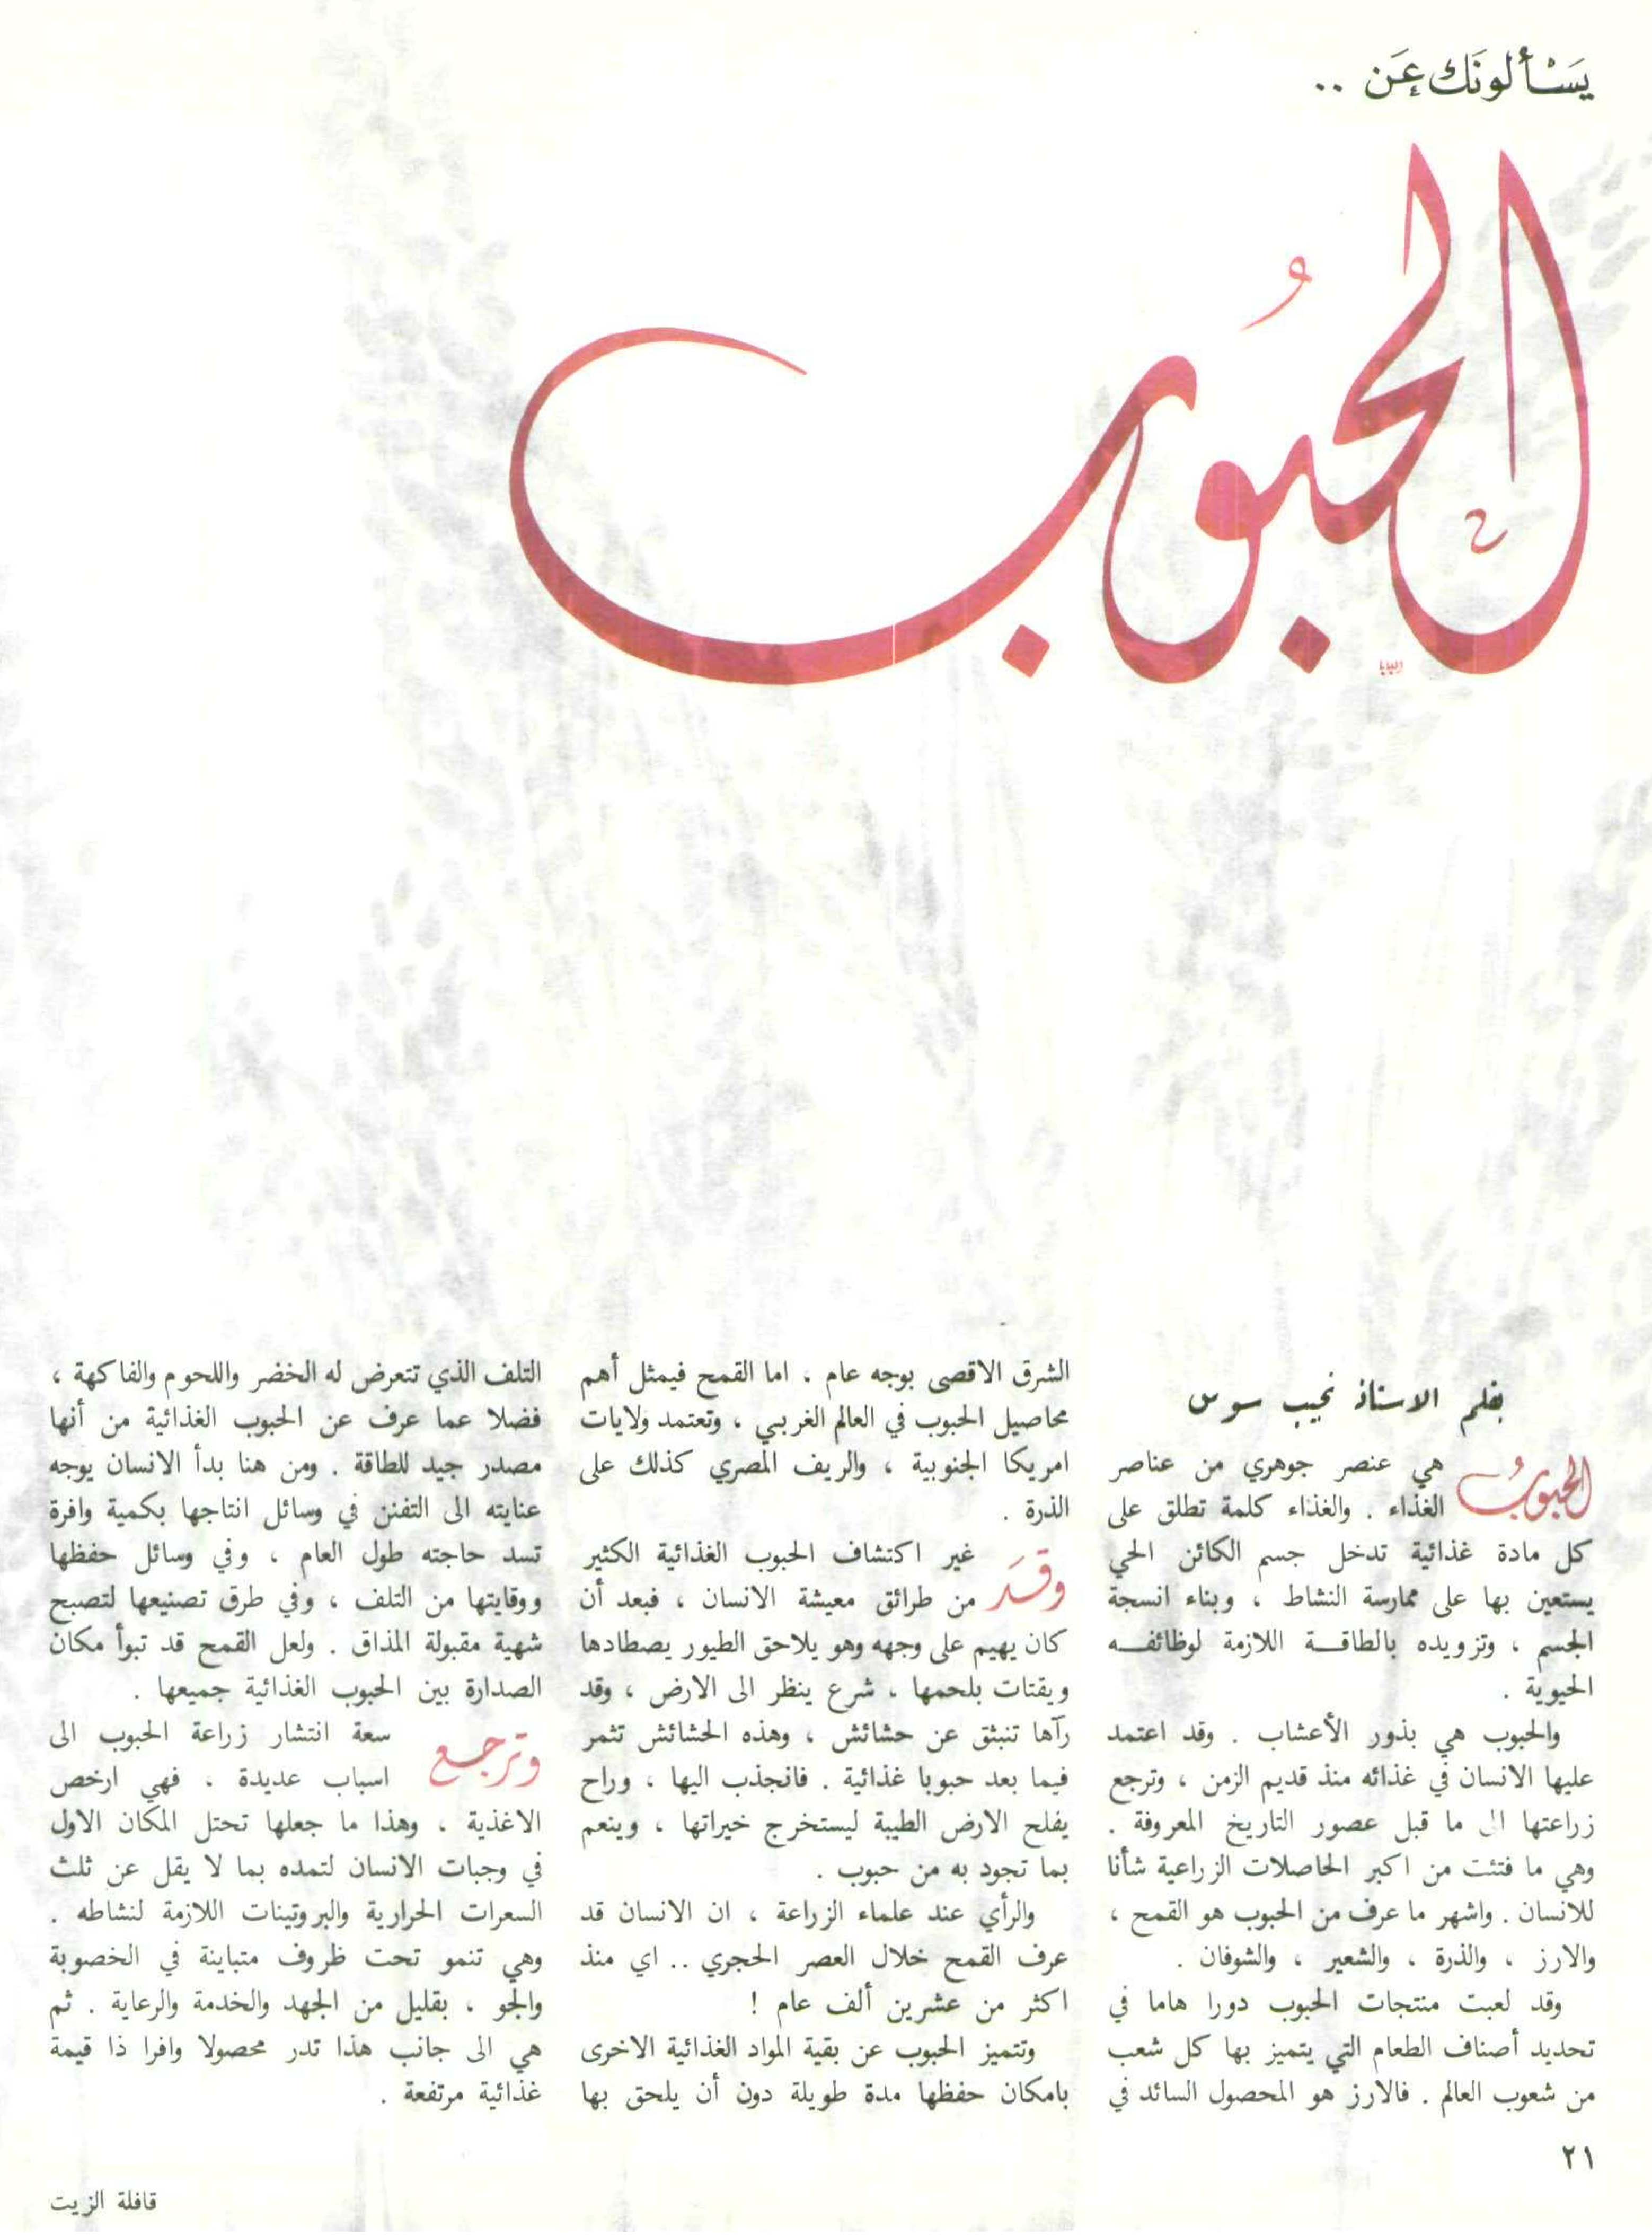 يَسْألونَك عَن ..
الحبُوب
بقلم الاستاذ نجيب سوس
الحبوبُ هي عنصر جوهري من عناصر
الغذاء . والغذاء كلمة تطلق على
كل مادة غذائية تدخل جسم الكائن الحي
يستعين بها على ممارسة النشاط ، وبناء انسجة
الجسم ، وتزويده بالطاقة اللازمة لوظائفه
الحيوية .
والحبوب هي بذور الأعشاب . وقد اعتمد
عليها الانسان في غذائه منذ قديم الزمن ، وترجع
زراعتها الى ما قبل عصور التاريخ المعروفة .
وهي ما فتئت من اكبر الحاصلات الزراعية شأنا
للانسان . واشهر ما عرف من الحبوب هو القمح ،
والارز ، والذرة ، والشعير ، والشوفان .
وقد لعبت منتجات الحبوب دورا هاما في
تحديد أصناف الطعام التي يتميز بها كل شعب
من شعوب العالم . فالارز هو المحصول السائد في
الشرق الاقصى بوجه عام ، اما القمح فيمثل أهم
محاصيل الحبوب في العالم الغربي ، وتعتمد ولايات
امريكا الجنوبية ، والريف المصري كذلك على
الذرة .
وقَد غير اكتشاف الحبوب الغذائية الكثير
من طرائق معيشة الانسان ، فبعد أن
كان يهيم على وجهه وهو يلاحق الطيور يصطادها
ويقتات بلحمها ، شرع ينظر الى الارض ، وقد
رآها تنبثق عن حشائش ، وهذه الحشائش تثمر
فيما بعد حبوبا غذائية . فانجذب اليها ، وراح
يفلح الارض الطيبة ليستخرج خيراتها ، وينعم
بما تجود به من حبوب .
والرأي عند علماء الزراعة ، ان الانسان قد
عرف القمح خلال العصر الحجري .. اي منذ
اكثر من عشرين ألف عام !
وتتميز الحبوب عن بقية المواد الغذائية الاخرى
بامكان حفظها مدة طويلة دون أن يلحق بها
التلف الذي تتعرض له الخضر واللحوم والفاكهة ،
فضلا عما عرف عن الحبوب الغذائية من أنها
مصدر جيد للطاقة . ومن هنا بدأ الانسان يوجه
عنايته الى التفنن في وسائل انتاجها بكمية وافرة
تسد حاجته طول العام ، وفي وسائل حفظها
ووقايتها من التلف ، وفي طرق تصنيعها لتصبح
شهية مقبولة المذاق . ولعل القمح قد تبوأ مكان
الصدارة بين الحبوب الغذائية جميعها .
وترجع سعة انتشار زراعة الحبوب الى
اسباب عديدة . فهي ارخص
الاغذية ، وهذا ما جعلها تحتل المكان الاول
في وجبات الانسان لتمده بما لا يقل عن ثلث
السعرات الحرارية والبروتينات اللازمة لنشاطه .
وهي تنمو تحت ظروف متباينة في الخصوبة
والجو ، بقليل من الجهد والخدمة والرعاية . ثم
هي الى جانب هذا تدر محصولا وافرا ذا قيمة
غذائية مرتفعة .
٢١
قافلة الزيت